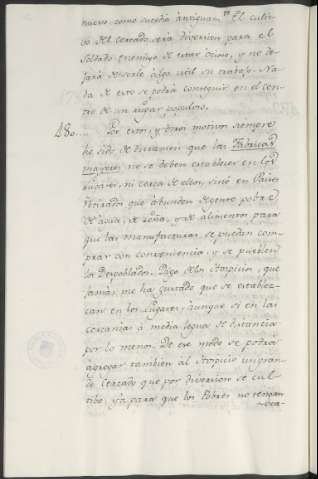 nuevo, como sucedía antiguam.te El culti-
vo del cercado será diversion para el
Soldado enemigo de estar ócioso, y no de-
jará de serle algo util su trabajo. Na-
da de esto se podrá conseguir en el cen-
tro de un Lugar populoso.
480. Por estos, y otros motivos siempre
he sido de dictamen que las Fabricas
mayores no se deben establecer en los
Lugares, ni cerca de ellos, sinó en Paises
retirados que abunden de gente pobre
de agua, de leña, y de alimentos para
que las manufacturas se puedan com-
prar con conveniencia, y se pueblen
los Despoblados. Digo de los Hospicios, que
jamás me ha gustado que se establez-
can en los Lugares, áunque sí en las
cercanías à media legua de distancia
por lo menos. De ese modo se podría
ágregar tambien al Hospicio un gran-
de Cercado que por diversion se cul-
tibe, yá para que los Pobres no tengan
oca-